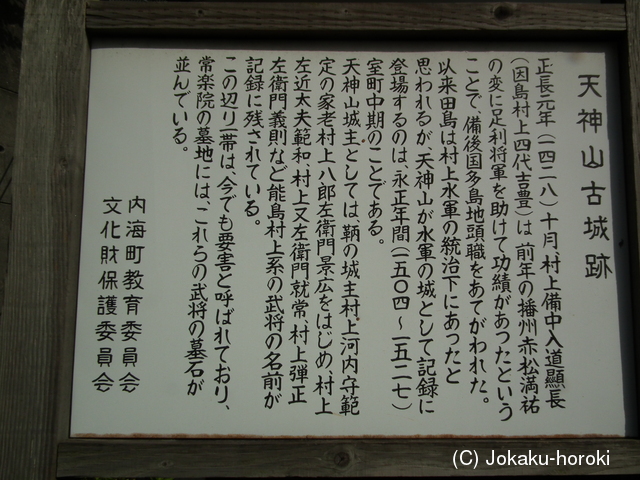 天神山古城跡
正長元年(一四二八)十月、村上備中入道顯長
(因島村上四代吉豊)は、前年の播州赤松満祐
の変に足利将軍を助けて功績があつたという
ことで、備後国多島地頭職をあてがわれた。
以来田島は村上水軍の統治下にあったと
思われるが、天神山が水軍の城として記録に
登場するのは、永正年間(一五〇四～一五二七)
室町中期のことである。
天神山城主としては、鞆の城主村上河内守範
定の家老村上八郎左衛門景広をはじめ、村上
左近太夫範和、村上又左衛門就常、村上弾正
左衛門義則など能島村上系の武将の名前が
記録に残されている。
この辺り一帯は、今でも要害と呼ばれており、
常楽院の墓地には、これらの武将の墓石が
並んでいる。
内海町教育委員会
文化財保護委員会
(C) Jokaku-horoki